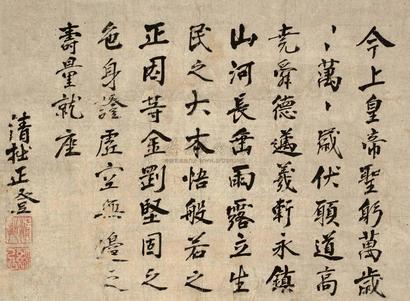 今上皇帝聖躬萬歲
、萬、歲伏願道高
堯舜德邁羲軒永鎮
山河長垂雨露立生
民之大本悟般若之
正因等金剛堅固之
色身證虛空無邊之
壽量就座
清拙正澄